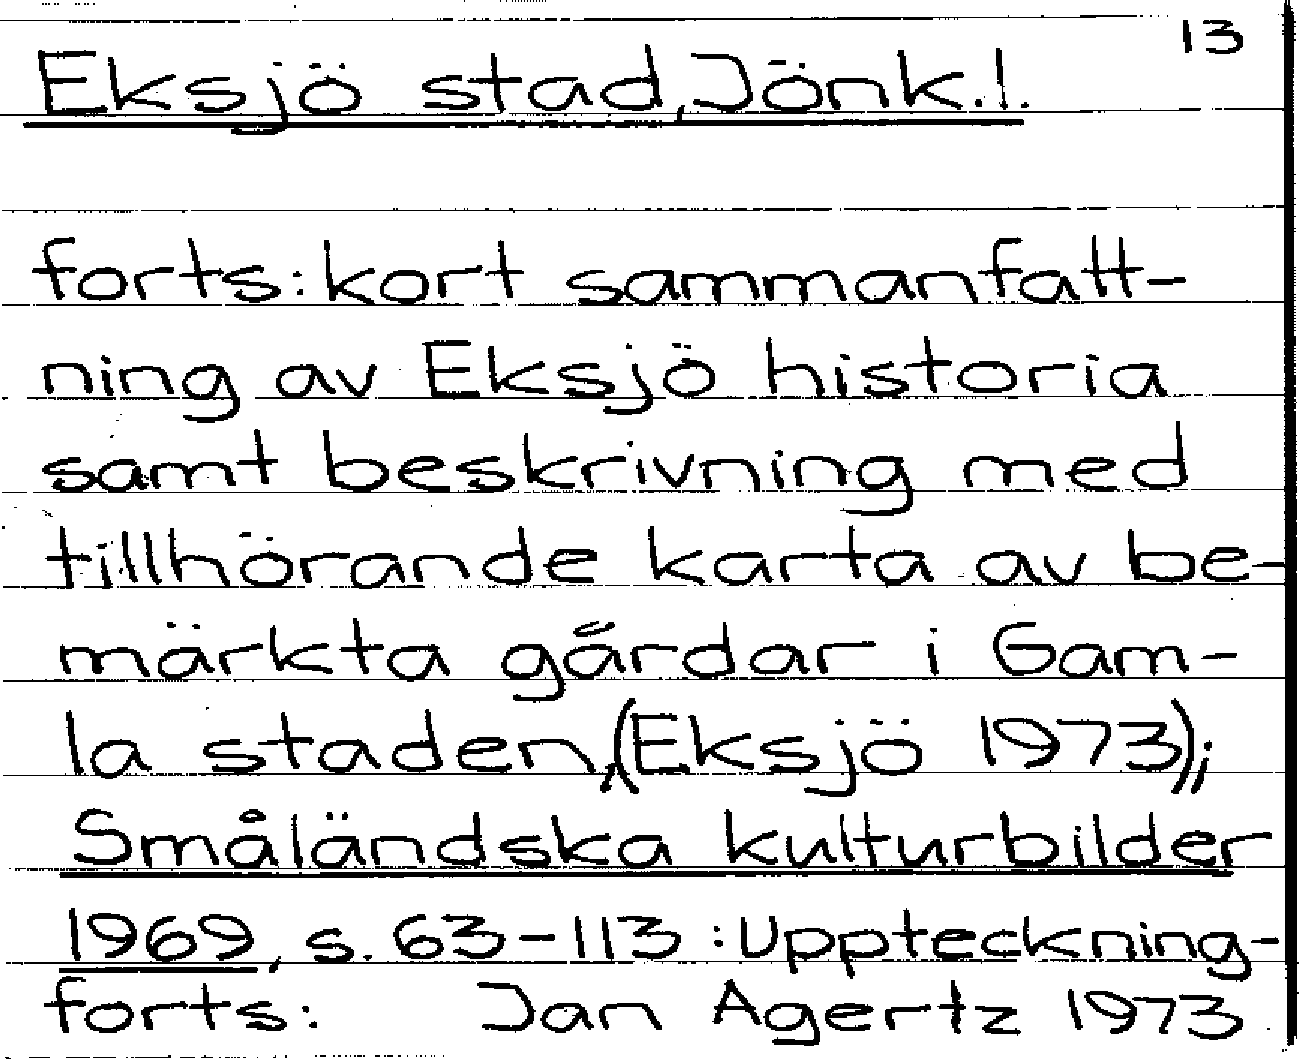 13
Eksjö stad, Jönk.l.
forts: kort sammanfatt-
ning av Eksjö historia
samt beskrivning med
tillhörande karta av be-
märkta gårdar i Gam-
la staden, (Eksjö 1973);
Småländska kulturbilder
1969, s. 63-113 : Uppteckning-
forts: Jan Agertz 1973